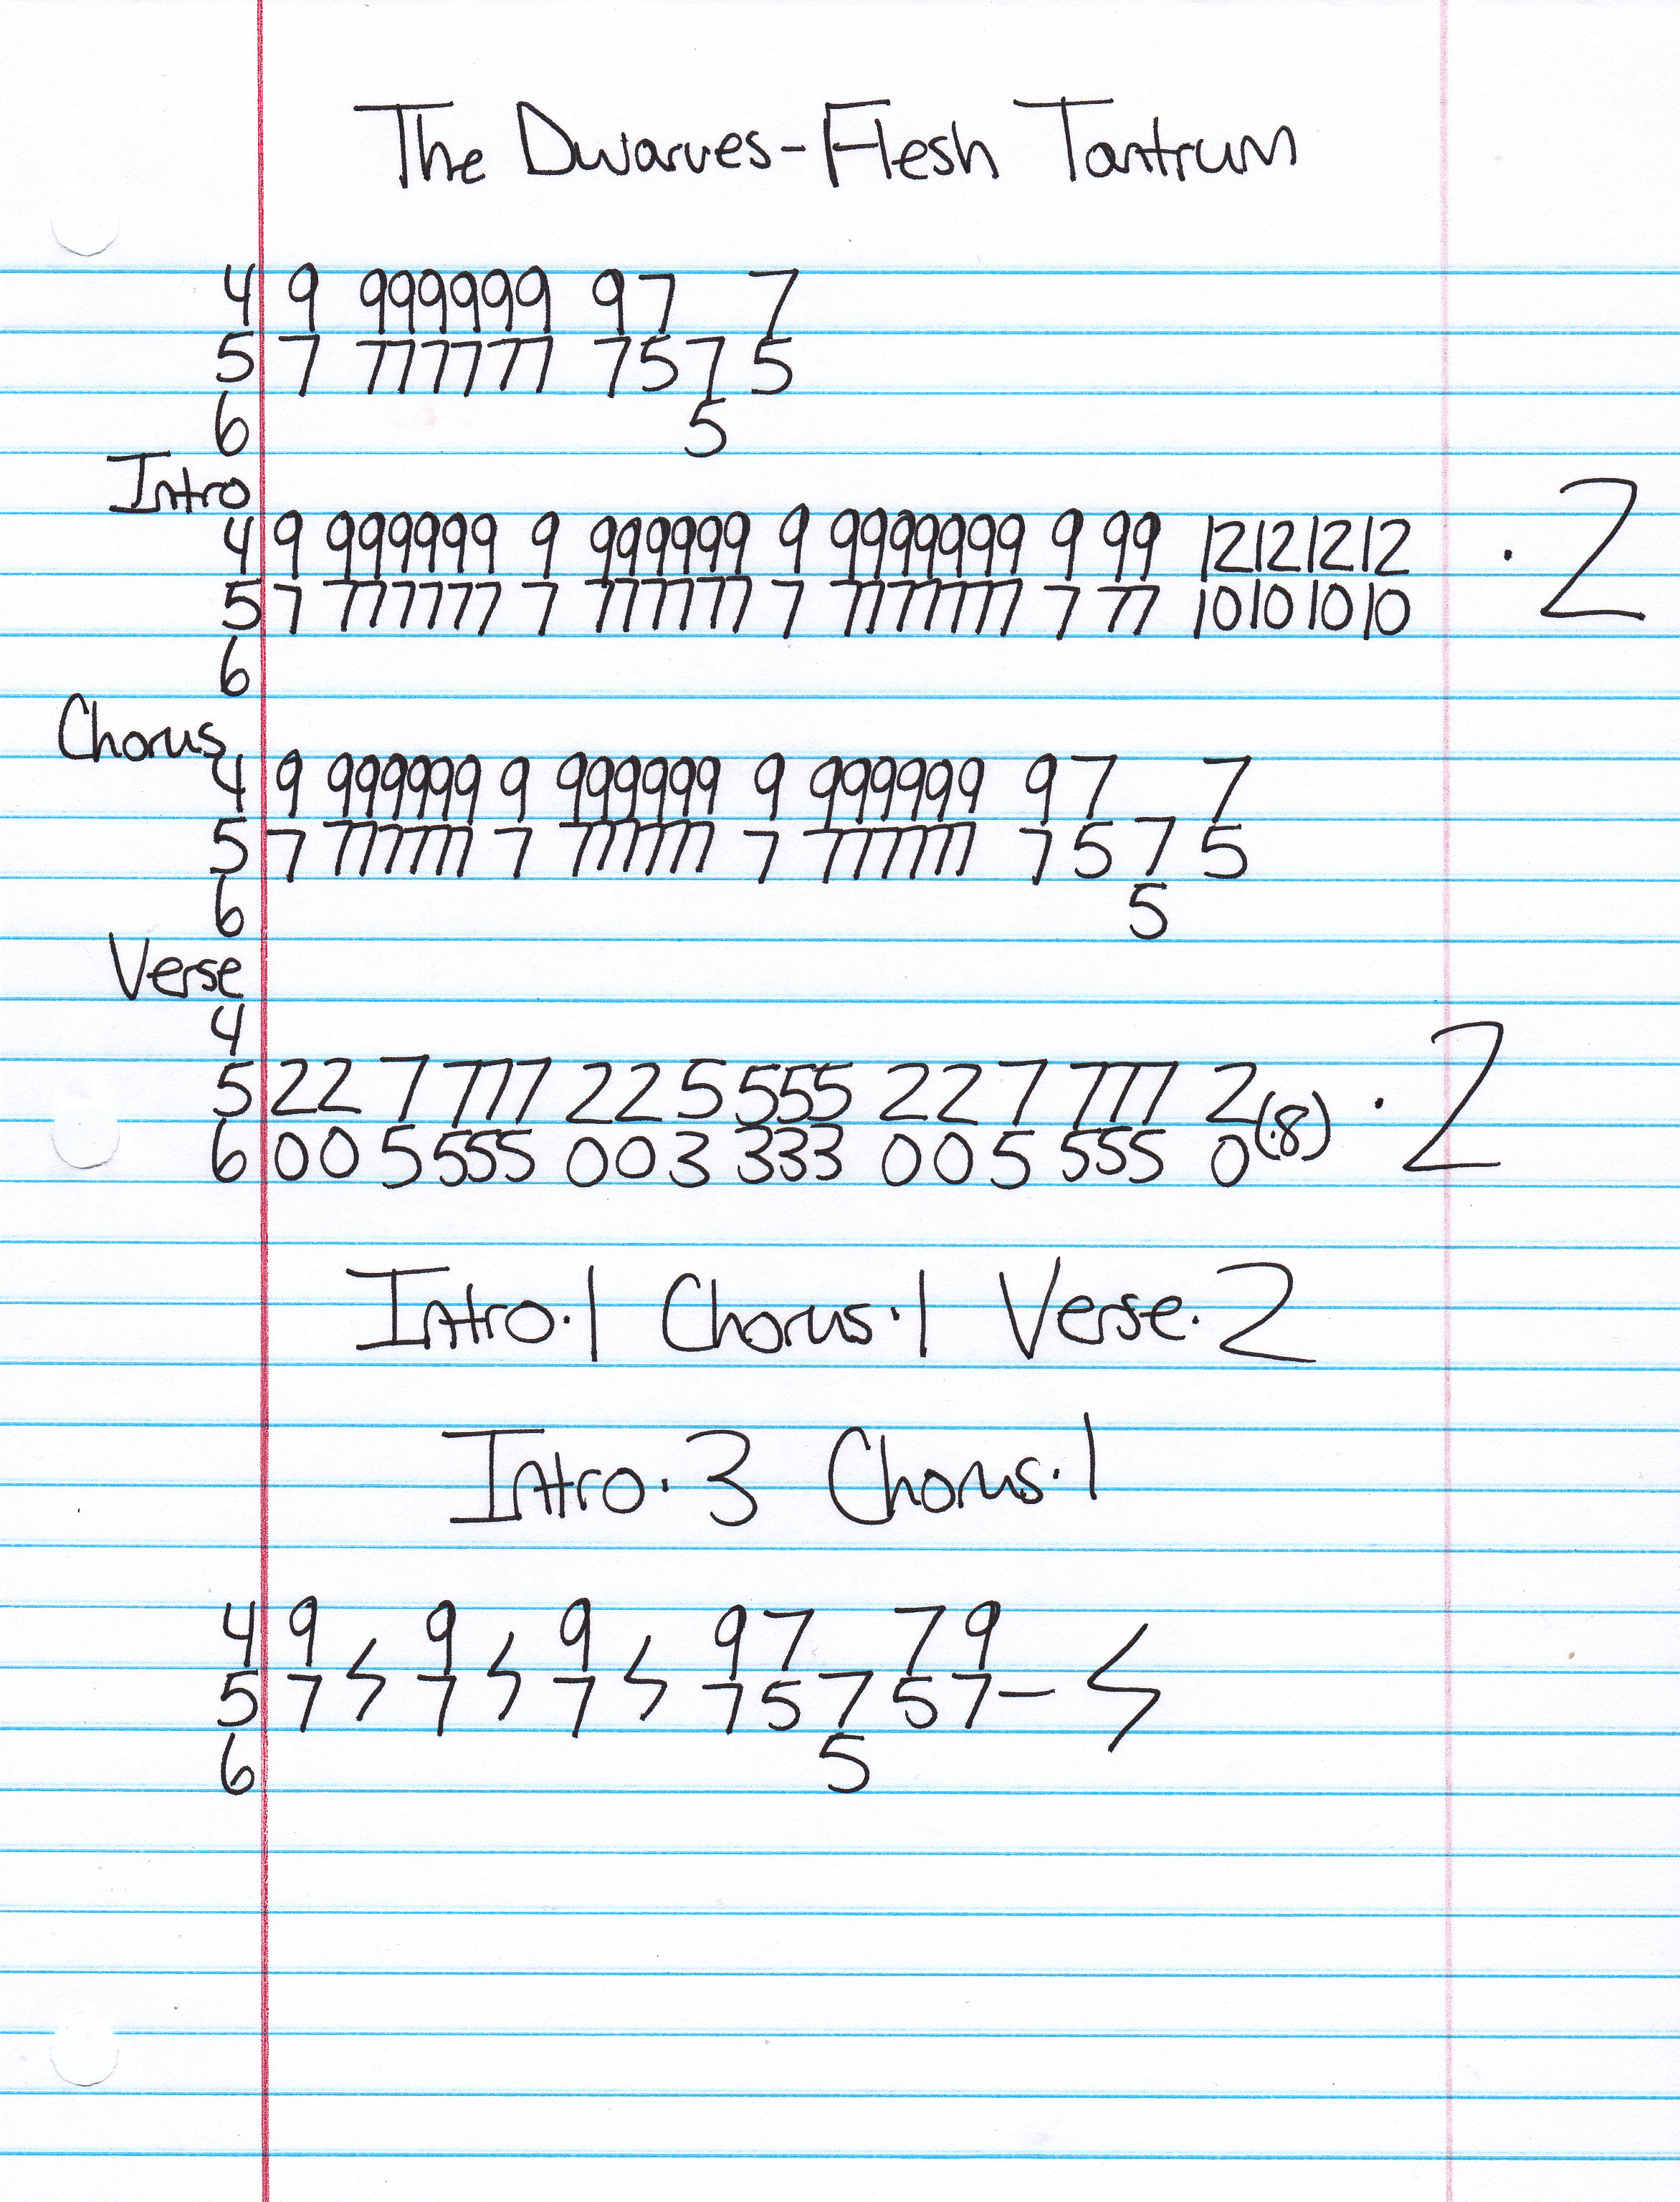 The Dwarves-Flesh Tantrum
4 9 999999 97 7
5 7 777777 7575
6 5
Intro
4 9 999999 9 999999 9 9999999 9 99 12121212 · 2
5 7 777777 7 777777 7 7777777 7 77 10101010
6
Chorus
4 9 999999 9 999999 9 999999 97 7
5 7 777777 7 777777 7 777777 7575
6 5
Verse
4
5 22 7 777 22 5 555 22 7 777 2 (·8) · 2
6 00 5 555 00 3 333 00 5 555 0
Intro·1 Chorus·1 Verse·2
Intro·3 Chorus·1
4 9 9 9 97 79
5 7 7 7 75757–
6 5